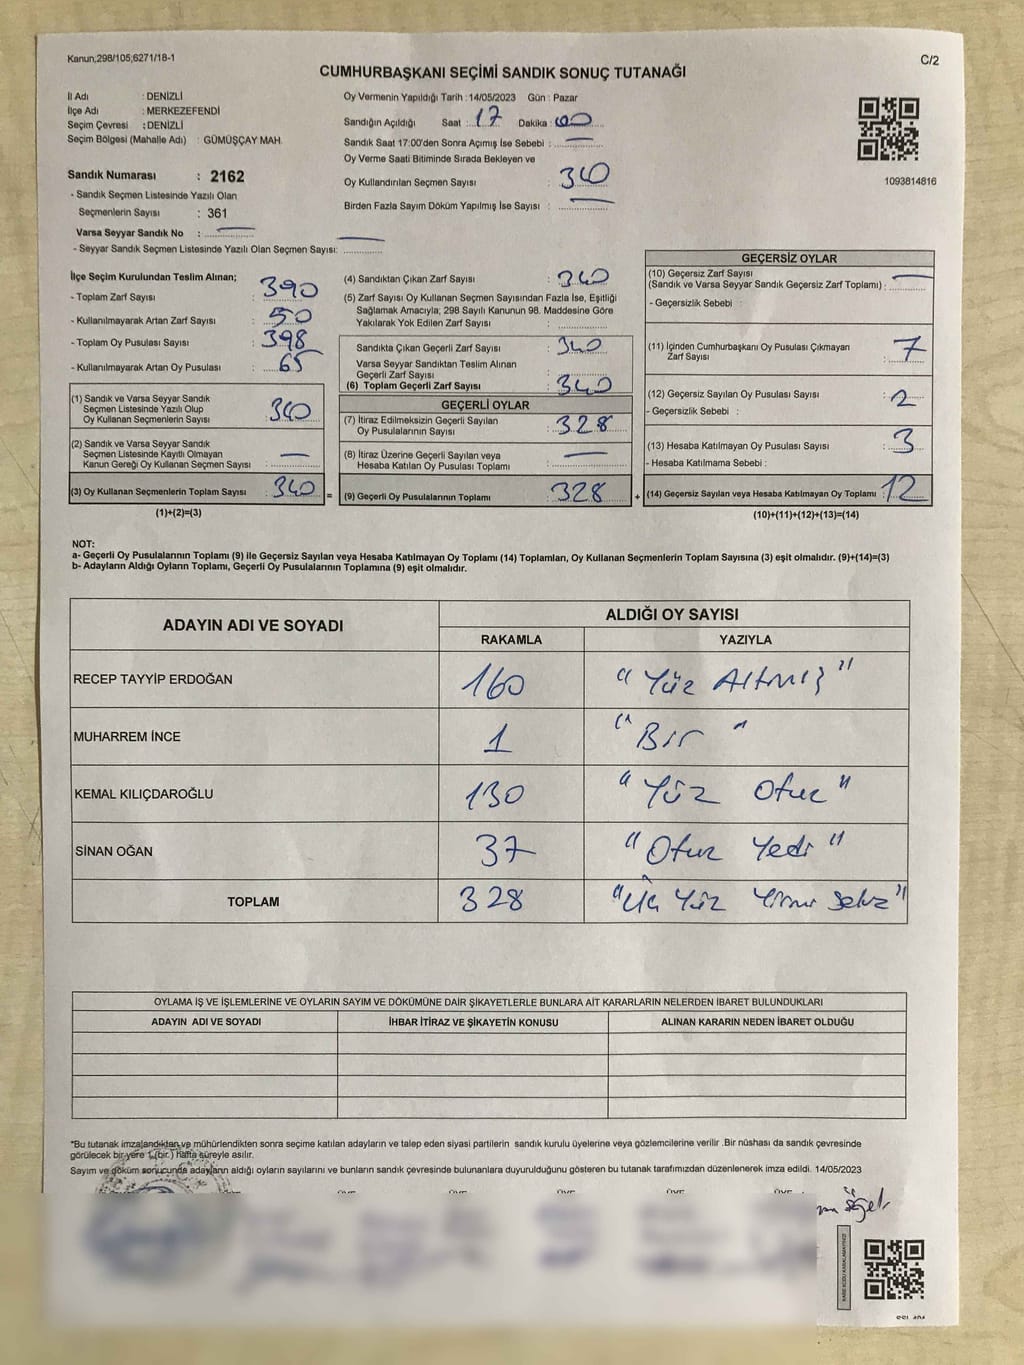 Kanun;298/105;6271/18-1
C/2
CUMHURBAŞKANI SEÇİMİ SANDIK SONUÇ TUTANAĞI
İl Adı : DENİZLİ
İlçe Adı : MERKEZEFENDİ
Seçim Çevresi : DENİZLİ
Seçim Bölgesi (Mahalle Adı) : GÜMÜŞÇAY MAH.
Sandık Numarası : 2162
- Sandık Seçmen Listesinde Yazılı Olan
Seçmenlerin Sayısı : 361
Varsa Seyyar Sandık No :
- Seyyar Sandık Seçmen Listesinde Yazılı Olan Seçmen Sayısı:
Oy Vermenin Yapıldığı Tarih : 14/05/2023 Gün : Pazar
Sandığın Açıldığı Saat : 17 Dakika : 00
Sandık Saat 17:00'den Sonra Açımış İse Sebebi :
Oy Verme Saati Bitiminde Sırada Bekleyen ve
Oy Kullandırılan Seçmen Sayısı : 340
Birden Fazla Sayım Döküm Yapılmış İse Sayısı :
1093814816
İlçe Seçim Kurulundan Teslim Alınan;
- Toplam Zarf Sayısı : 390
- Kullanılmayarak Artan Zarf Sayısı : 50
- Toplam Oy Pusulası Sayısı : 398
- Kullanılmayarak Artan Oy Pusulası : 65
(1) Sandık ve Varsa Seyyar Sandık
Seçmen Listesinde Yazılı Olup
Oy Kullanan Seçmenlerin Sayısı : 340
(2) Sandık ve Varsa Seyyar Sandık
Seçmen Listesinde Kayıtlı Olmayan
Kanun Gereği Oy Kullanan Seçmen Sayısı :
(3) Oy Kullanan Seçmenlerin Toplam Sayısı : 340
(1)+(2)=(3)
(4) Sandıktan Çıkan Zarf Sayısı : 340
(5) Zarf Sayısı Oy Kullanan Seçmen Sayısından Fazla İse, Eşitliği
Sağlamak Amacıyla; 298 Sayılı Kanunun 98. Maddesine Göre
Yakılarak Yok Edilen Zarf Sayısı :
Sandıkta Çıkan Geçerli Zarf Sayısı : 340
Varsa Seyyar Sandıktan Teslim Alınan
Geçerli Zarf Sayısı :
(6) Toplam Geçerli Zarf Sayısı : 340
GEÇERLİ OYLAR
(7) İtiraz Edilmeksizin Geçerli Sayılan
Oy Pusulalarının Sayısı : 328
(8) İtiraz Üzerine Geçerli Sayılan veya
Hesaba Katılan Oy Pusulası Toplamı :
= (9) Geçerli Oy Pusulalarının Toplamı : 328
GEÇERSİZ OYLAR
(10) Geçersiz Zarf Sayısı
(Sandık ve Varsa Seyyar Sandık Geçersiz Zarf Toplamı) :
- Geçersizlik Sebebi :
(11) İçinden Cumhurbaşkanı Oy Pusulası Çıkmayan
Zarf Sayısı : 7
(12) Geçersiz Sayılan Oy Pusulası Sayısı : 2
- Geçersizlik Sebebi :
(13) Hesaba Katılmayan Oy Pusulası Sayısı : 3
- Hesaba Katılmama Sebebi :
+ (14) Geçersiz Sayılan veya Hesaba Katılmayan Oy Toplamı : 12
(10)+(11)+(12)+(13)=(14)
NOT:
a- Geçerli Oy Pusulalarının Toplamı (9) ile Geçersiz Sayılan veya Hesaba Katılmayan Oy Toplamı (14) Toplamları, Oy Kullanan Seçmenlerin Toplam Sayısına (3) eşit olmalıdır. (9)+(14)=(3)
b- Adayların Aldığı Oyların Toplamı, Geçerli Oy Pusulalarının Toplamına (9) eşit olmalıdır.
ADAYIN ADI VE SOYADI
ALDIĞI OY SAYISI
RAKAMLA YAZIYLA
RECEP TAYYİP ERDOĞAN 160 "Yüz Altmış"
MUHARREM İNCE 1 "Bir"
KEMAL KILIÇDAROĞLU 130 "Yüz Otuz"
SİNAN OĞAN 37 "Otuz Yedi"
TOPLAM 328 "Üç Yüz Yirmi Sekiz"
OYLAMA İŞ VE İŞLEMLERİNE VE OYLARIN SAYIM VE DÖKÜMÜNE DAİR ŞİKAYETLERLE BUNLARA AİT KARARLARIN NELERDEN İBARET BULUNDUKLARI
ADAYIN ADI VE SOYADI İHBAR İTİRAZ VE ŞİKAYETİN KONUSU ALINAN KARARIN NEDEN İBARET OLDUĞU
*Bu tutanak imzalandıktan ve mühürlendikten sonra seçime katılan adayların ve talep eden siyasi partilerin sandık kurulu üyelerine veya gözlemcilerine verilir .Bir nüshası da sandık çevresinde
görülecek bir yere 1 (bir.) hafta süreyle asılır.
Sayım ve döküm sonucunda adayların aldığı oyların sayılarını ve bunların sandık çevresinde bulunanlara duyurulduğunu gösteren bu tutanak tarafımızdan düzenlenerek imza edildi. 14/05/2023